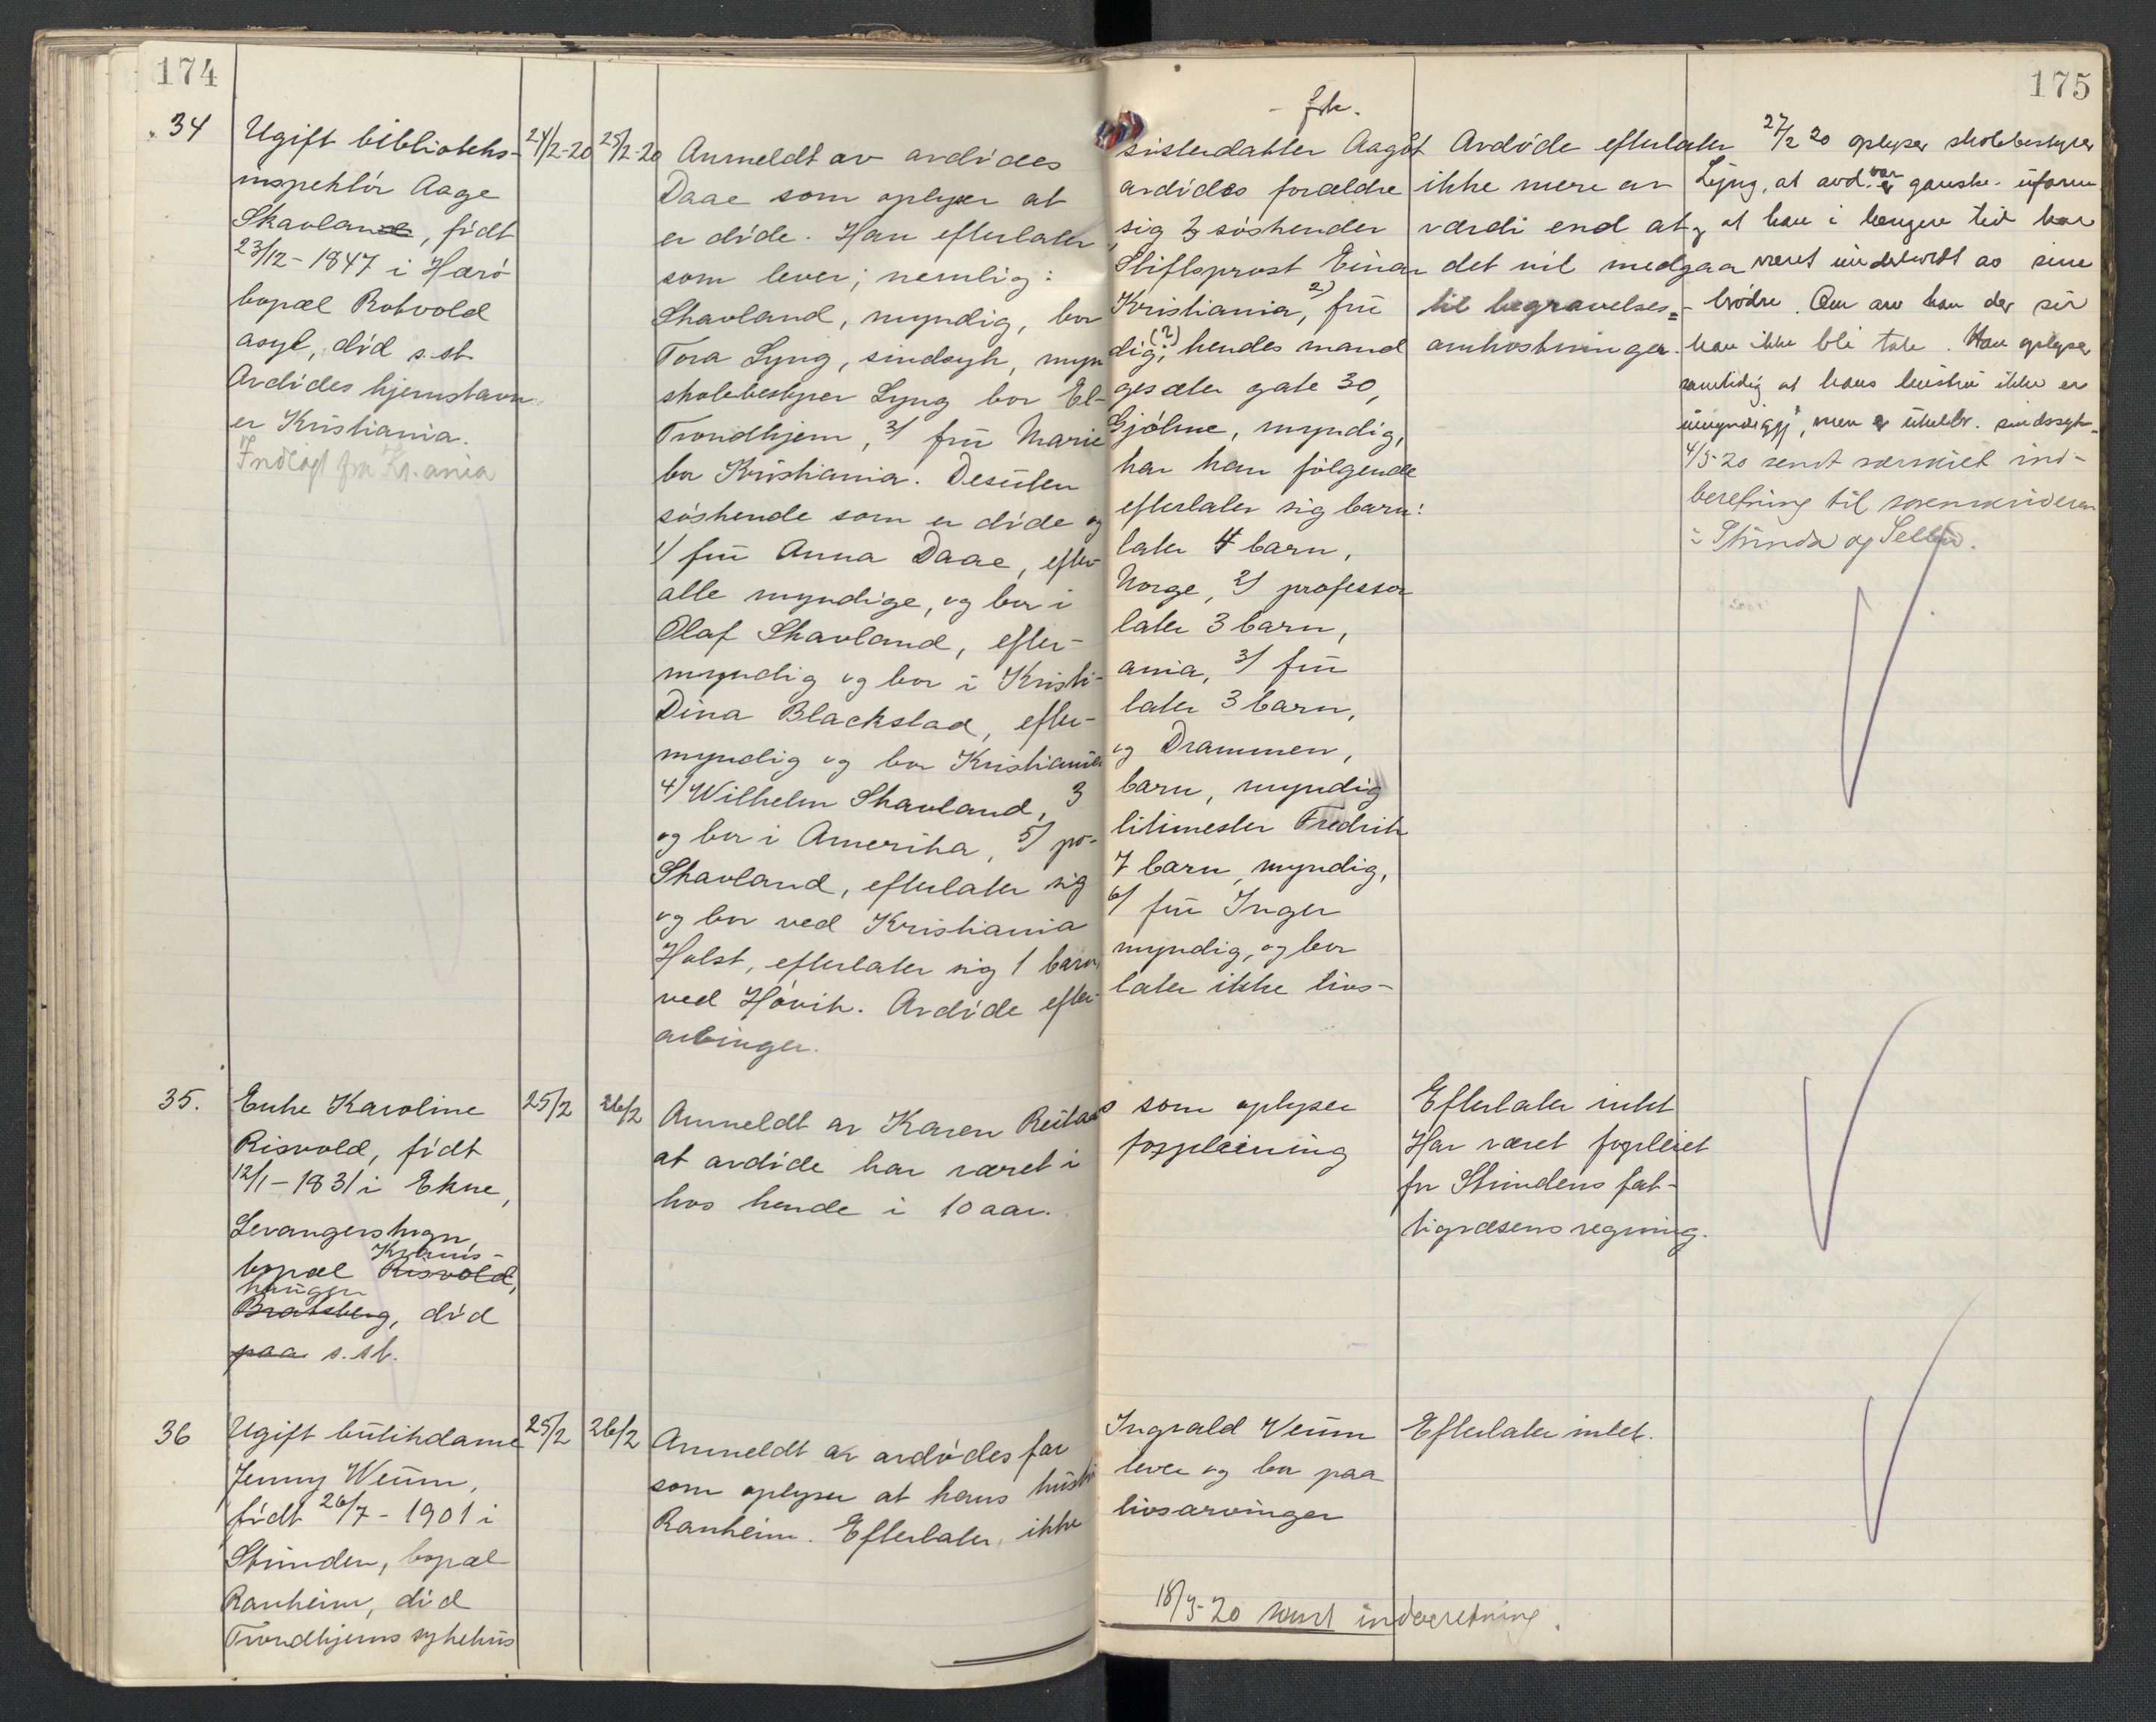 174
34
Ugift biblioteks-
inspektör Aage
Skavlan, födt
23/12-1847 i Herö
bopæl Rotvold
asyl, död s.st.
Avdödes hjemstavn
er Kristiania.
Indlagt fra Kr.ania
24/2-20
25/2-20
Anmeldt av avdödes
Daae som oplyser at
er döde. Han efterlater
som lever; nemlig:
Skavland, myndig, bor
Tora Lyng, sindsyk, myn
skolebestyrer Lyng bor El-
Trondhjem, 3/ frü Marie
bor Kristiania. Desüten
söskende som er döde og
1/ frü Anna Daae, efter-
alle myndige, og bor i
Olaf Skavland, efter-
myndig og bor i Kristi-
Dina Blackstad, efter-
myndig og bor Kristiania
4/ Wilhelm Skavland, 3
og bor i Amerika, 5/ po-
Skavland, efterlater sig
og bor ved Kristiania
Holst, efterlater sig 1 barn,
ved Hövik. Avdöde efter-
arvinger.
35.
Enke Karoline
Risvold, födt
12/1-1831 i Ekne,
Levangerskogn,
Kroküs-
bopæl Risvold,
haugen
Bratsberg, död
paa s.st.
25/2
26/2
Anmeldt av Karen Reitaas
at avdöde har været i
hos hende i 10 aar.
36
Ugift bütikdame
Jenny Weüm,
födt 26/7-1901 i
Strinden, bopæl
Ranheim, död
Trondhjems sykehüs
25/2
26/2
Anmeldt av avdödes far
som oplyser at hans hüstrü
Ranheim. Efterlater ikke
175
- frk.
sisterdatter Aagot
avdödes forældre
sig 3 söskender
Stiftsprost Einar
Kristiania, 2) frü
dig (?), hendes mand
gesæter gate 30,
Gjölme, myndig,
har han fölgende
efterlater sig barn:
later 4 barn,
Norge, 2/ professor
later 3 barn,
ania, 3/ frü
later 3 barn,
og Drammen,
barn, myndig
litimester Fredrik
7 barn, myndig,
6/ frü Inger
myndig, og bor
later ikke livs-
som oplyser
forpleining
Ingvald Veüm
lever og bor paa
livsarvinger
18/3-20 sendt indberetning.
Avdöde efterlater
ikke mere av
værdi end at
det vil medgaa
til begravelses=
omkostninger.
Efterlater intet
Har været forpleiet
for Strindens fat-
tigvæsens regning.
Efterlater intet.
27/2 20 oplyser skolebestyrer
Lyng, at avd. var ganske üform
og at han i længere tid har
været ünderholdt av sine
brödre. Om arv kan der sir
han ikke bli tale. Han oplyser
samtidig at hans hüstrü ikke er
ümyndiggj., men er ühelbr. sindssyk.
4/3-20 sendt særskilt ind-
beretning til sorenskriveren
i Strinda og Selbu.